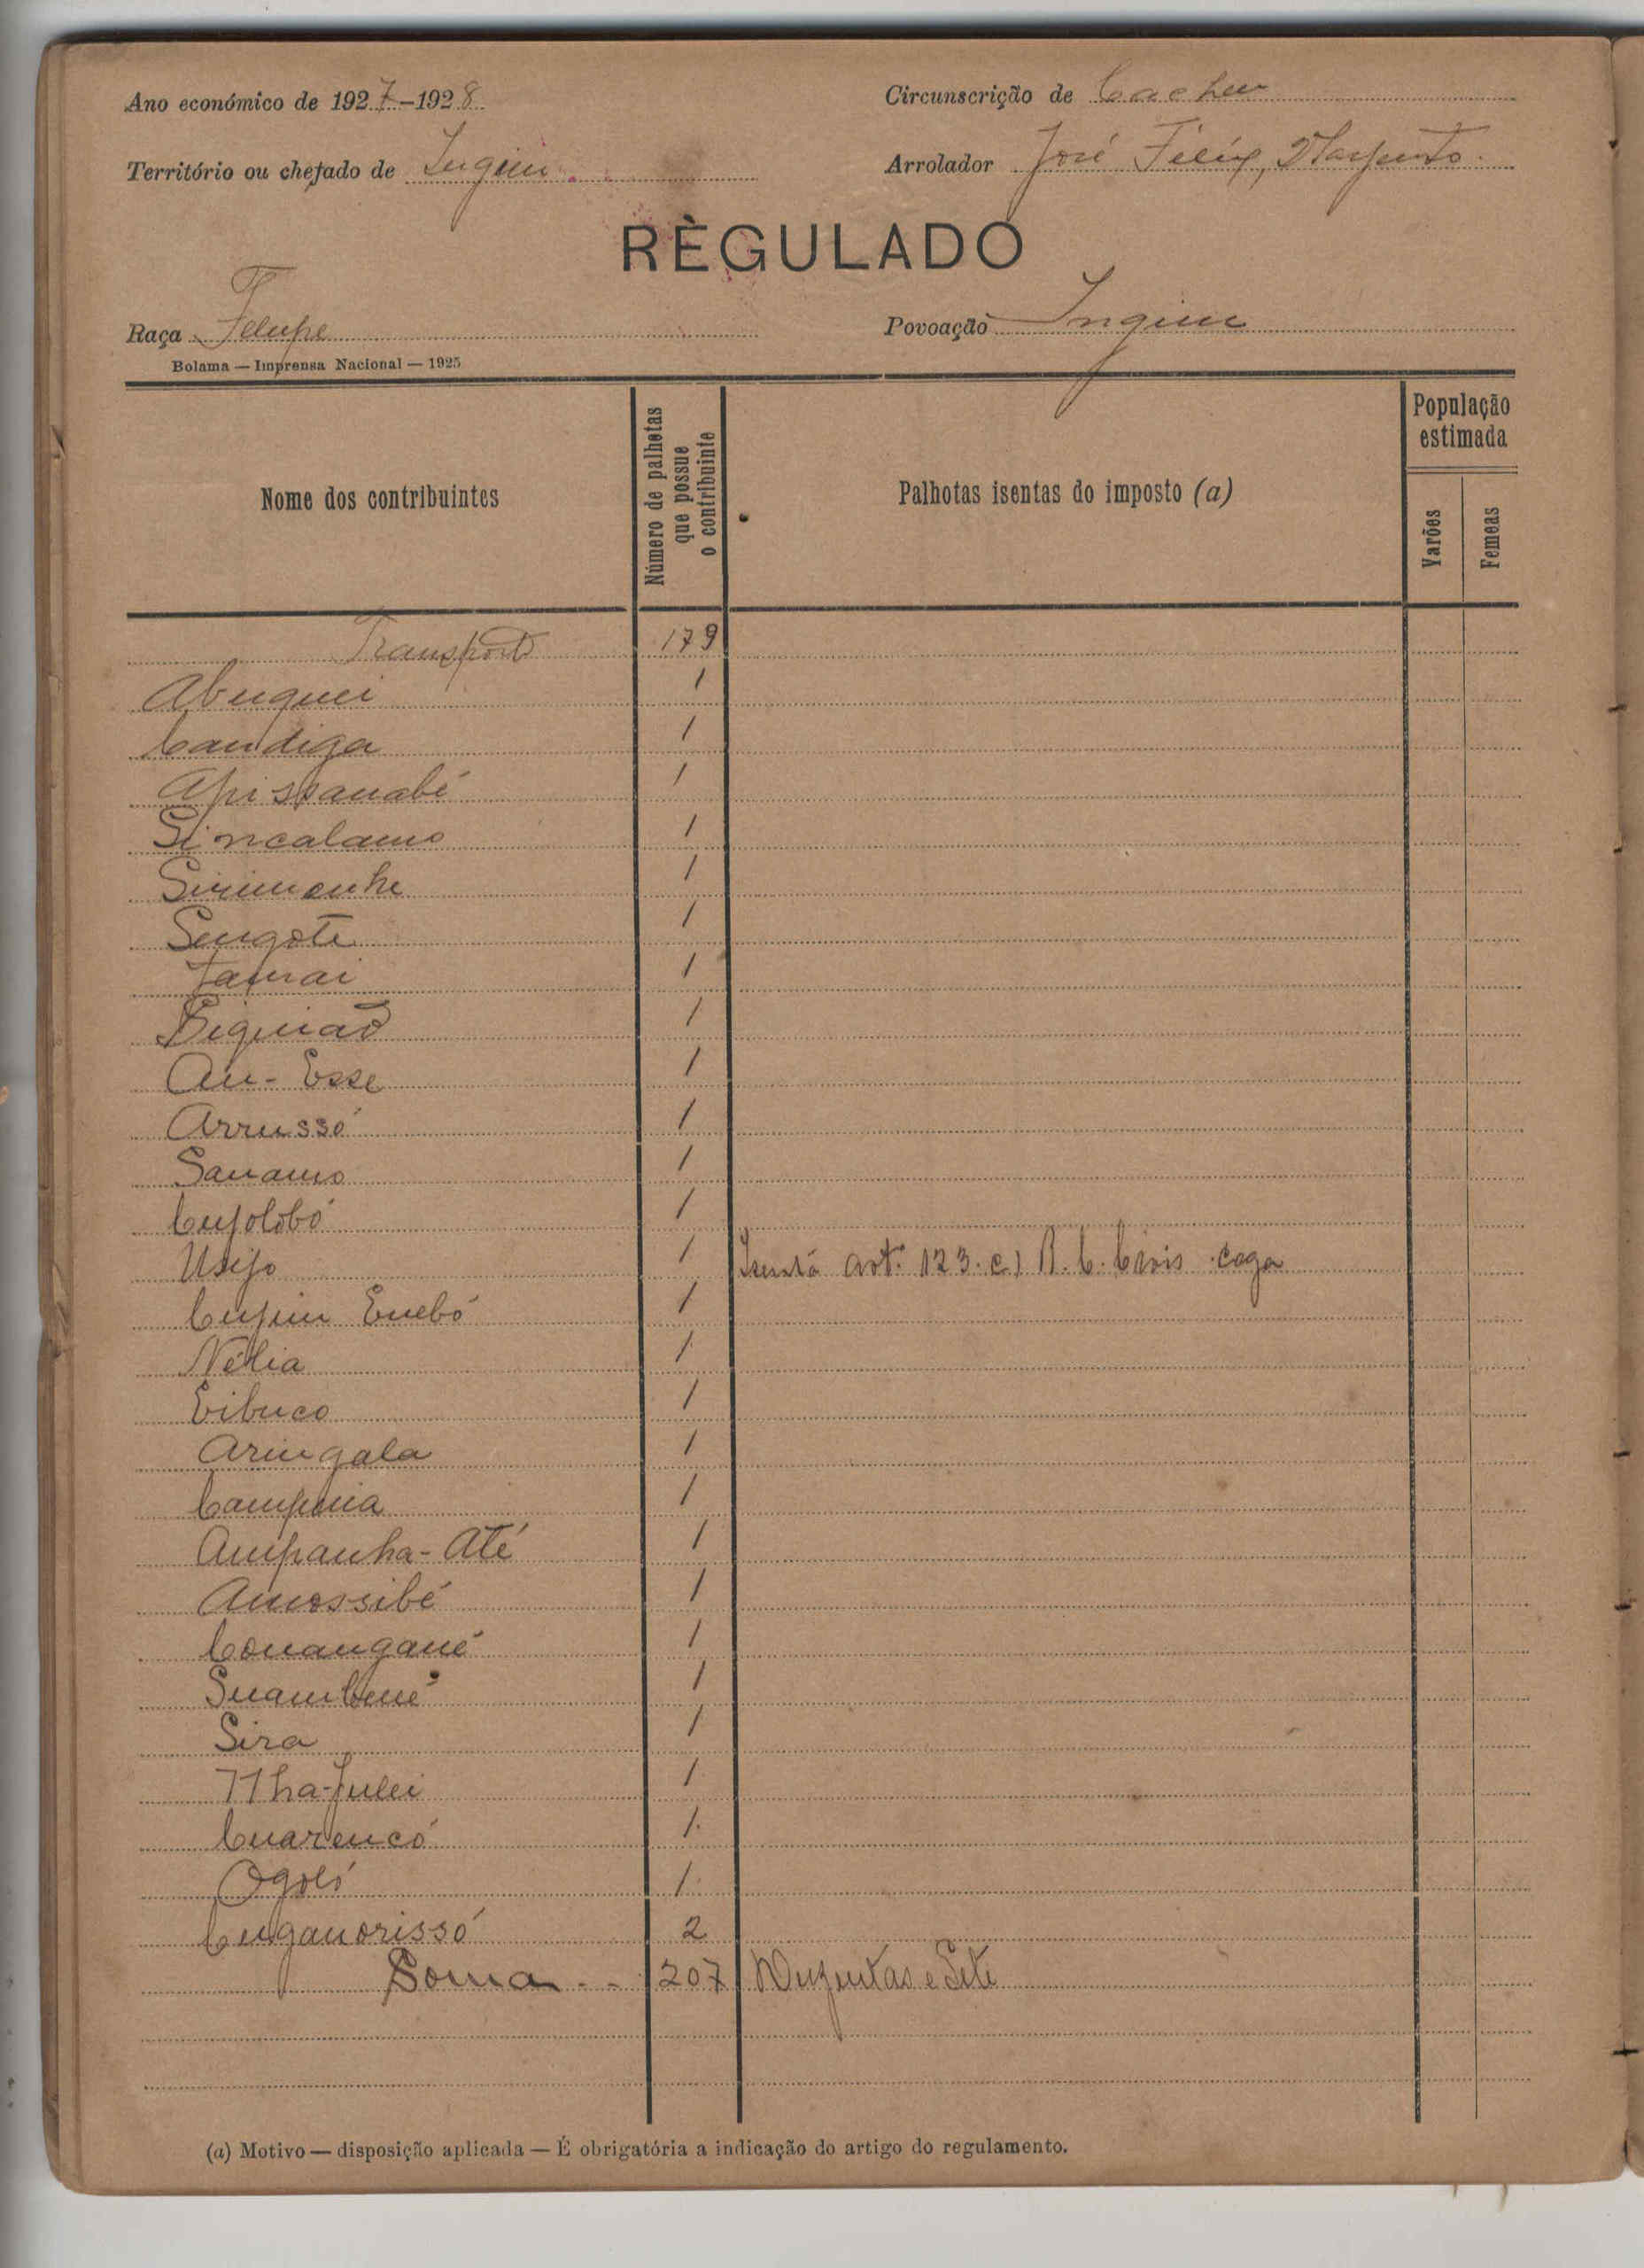 Ano económico de 1927-1928
Circunscrição de Cacheu
Território ou chefado de Jugim
Arrolador José Félix, 2º Sargento
RÈGULADO
Raça Felupe
Povoação Jugim
Bolama — Imprensa Nacional — 1925
Nome dos contribuintes
Número de palhotas que possue o contribuinte
Palhotas isentas do imposto (a)
População estimada
Varões
Femeas
Transporte 179
Abuquei 1
Candiga 1
Apissanabé 1
Sincalamo 1
Sinimanhe 1
Sengote 1
Jamai 1
Biquiao 1
Au-Esse 1
Arrussó 1
Sanamo 1
Cujolobó 1
Usijo 1 Isenta artº 123. c) R. C. Civis
Cujim Enebó 1
Nélia 1
Eibuco 1
Aringala 1
Campuia 1
Ampanha-Até 1
Amossibé 1
Conangané 1
Suambené 1
Sira 1
Nha-Julei 1
Cuarencó 1
Ogoló 1
Cuganorissó 2
Soma -- 207 Duzentas e Sete
(a) Motivo — disposição aplicada — É obrigatória a indicação do artigo do regulamento.